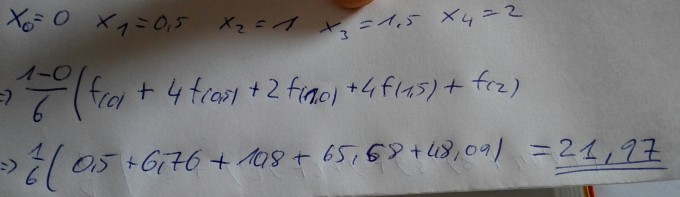 x₀=0 x₁=0,5 x₂=1 x₃=1,5 x₄=2
=> 1-0/6 (f(0) + 4f(0,5) + 2f(1,0) + 4f(1,5) + f(2)
=> 1/6 ( 0,5 + 6,76 + 10,8 + 65,68 + 48,09) = 21,97